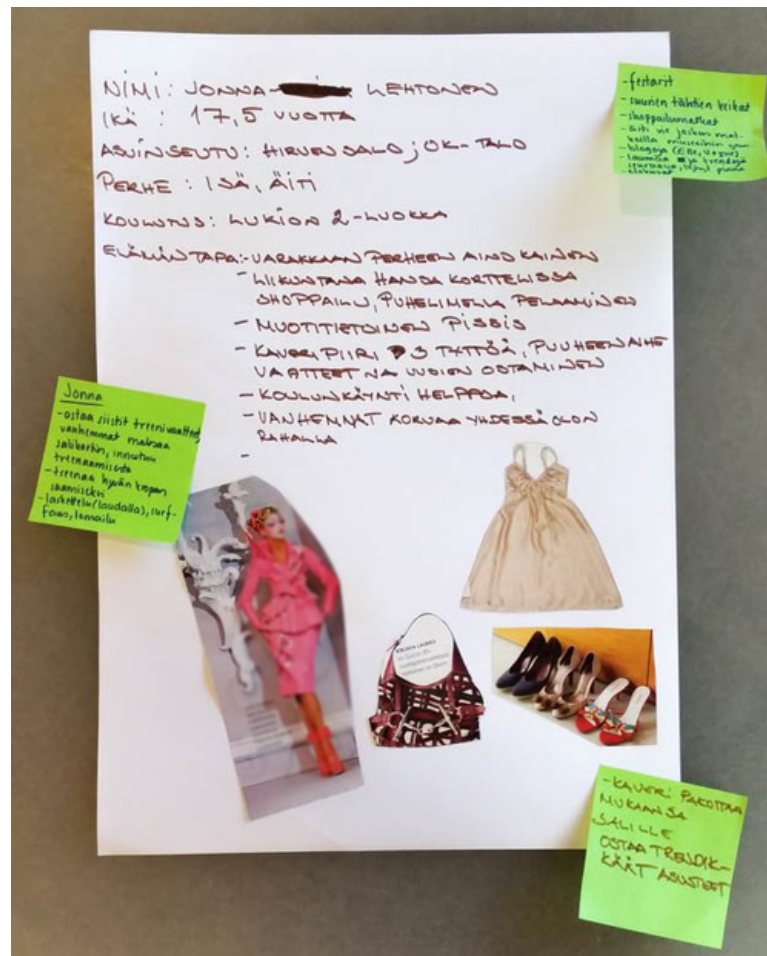 NIMI: JONNA- LEHTONEN
IKÄ : 17,5 VUOTTA
ASUINSEUTU: HIRVENSALO; OK-TALO
PERHE : ISÄ, ÄITI
KOULUTUS: LUKION 2-LUOKKA
ELÄMÄNTAPA:-VARAKKAAN PERHEEN AINOKAINEN
- LIIKUNTANA HANSA KORTTELISSA
SHOPPAILU, PUHELIMELLA PELAAMINEN
- MUOTITIETOINEN PISSIS
- KAVERIPIIRI 3 TYTTÖÄ, PUUHEENAIHE
VAATTEET NA UUSIEN OSTAMINEN
- KOULUNKÄYNTI HELPPOA,
- VANHEMMAT KORVAA YHDESSÄOLON
RAHALLA
-
-festarit
- suurien tähtien keikat
-shoppailumatkat
- äiti vie joskus mat-
koilla museoihin
- blogeja (Elle, Vogue)
ja trendejä
seuraava
elokuvat
Jonna
-ostaa siistit treenivaatteet,
vanhemmat maksaa
salikortin, innostuu
treenaamisesta
-treenaa hyvän kropan
saamiseksi
-laskettelu (laudalla), surf-
faus, lomailu
KIRJAVA LAUKKU
-KAVERI PAKOTTAA
MUKAANSA
SALILLE
OSTAA TRENDIK-
KÄÄT ASUSTEET